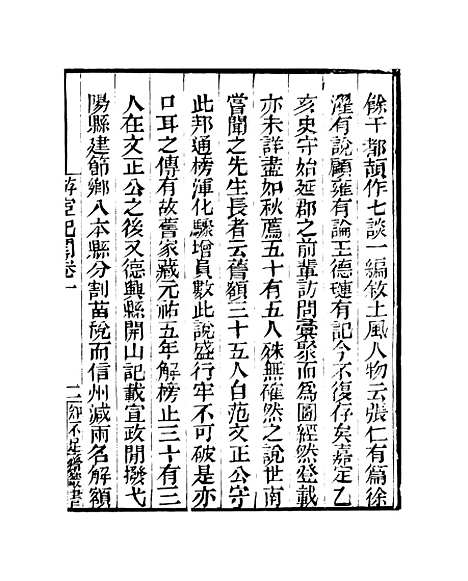 餘干都頡作七談一編敘土風人物云張仁有篇徐
濯有說顧雍有論王德璉有記今不復存矣嘉定乙
亥史守始延郡之前輩訪問彙聚而爲圖經然登載
亦未詳盡如秋薦五十有五人殊無確然之說世南
嘗聞之先生長者云舊額三十五人自范文正公守
此邦通榜渾化驟增員數此說盛行牢不可破是亦
口耳之傳有故舊家藏元祐五年解榜止三十有三
人在文正公之後又德興縣開山記載宣政開撥弋
陽縣建節鄉入本縣分割苗稅而信州減兩名解額
游宦紀聞卷一
二 知不足齋叢書